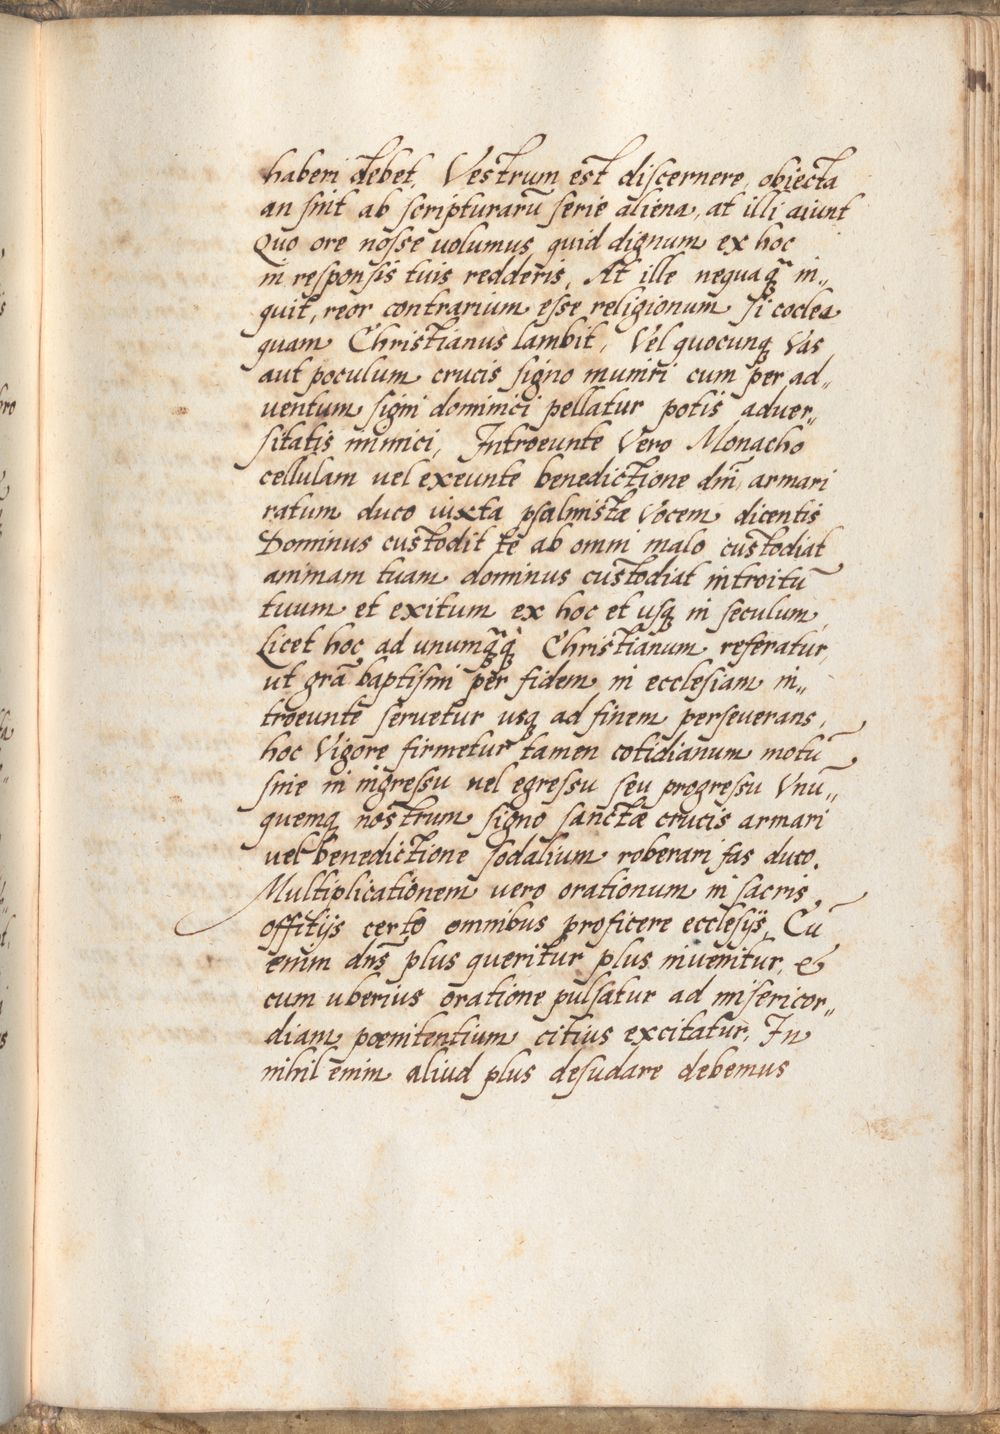 haberi debet. Vestrum est discernere, obiecta
an sint ab scripturarū serie aliena, at illi aiunt
Quo ore nosse uolumus quid dignum ex hoc
in responsis tuis redderis. At ille nequaq̃ in„
quit, reor contrarium esse religionum si coclea
quam Christianus lambit, Vel quocunq Vas
aut poculum crucis signo muniri cum per ad„
uentum signi dominici pellatur potis aduer„
sitatis inimici, Introeunte Vero Monacho
cellulam uel exeunte benedictione dni, armari
ratum duco iuxta psalmistæ Vocem dicentis
Dominus custodit te ab omni malo custodiat
animam tuam dominus custodiat introitū
tuum et exitum ex hoc et usq in seculum,
Licet hoc ad unumq̃q̃ Christianum referatur,
ut grã baptismi per fidem in ecclesiam in„
troeunte seruetur usq ad finem perseuerans,
hoc Vigore firmetur tamen cotidianum motū
siue in ingressu uel egressu seu progressu Vnū„
quemq nostrum signo sanctæ crucis armari
uel benedictione sodalium roberari fas duco.
Multiplicationem uero orationum in sacris
offitijs certo omnibus proficere ecclesijs, Cū
enim dns plus queritur plus inuenitur, &
cum uberius oratione pulsatur ad misericor„
diam pœnitentium citius excitatur. In
nihil enim aliud plus desudare debemus